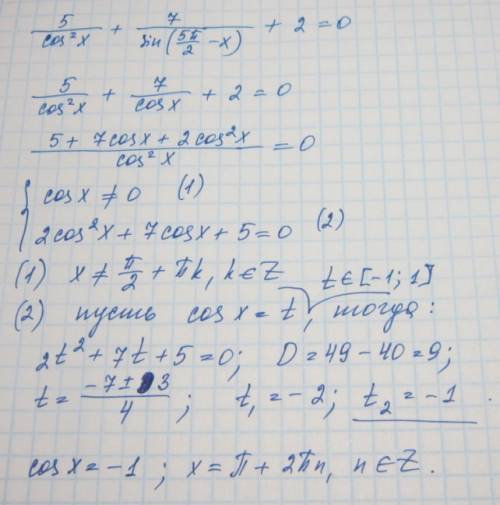 5/cos²x + 7/sin(5π/2 − x) + 2 = 0
5/cos²x + 7/cosx + 2 = 0
(5 + 7cosx + 2cos²x)/cos²x = 0
{ cosx ≠ 0 (1)
2cos²x + 7cosx + 5 = 0 (2)
(1) x ≠ π/2 + πk, k∈Z t∈[-1; 1]
(2) пусть cosx = t, тогда:
2t² + 7t + 5 = 0; D = 49 − 40 = 9;
t = (−7 ± 3)/4; t₁ = −2; t₂ = −1.
cosx = −1; x = π + 2πn, n∈Z.